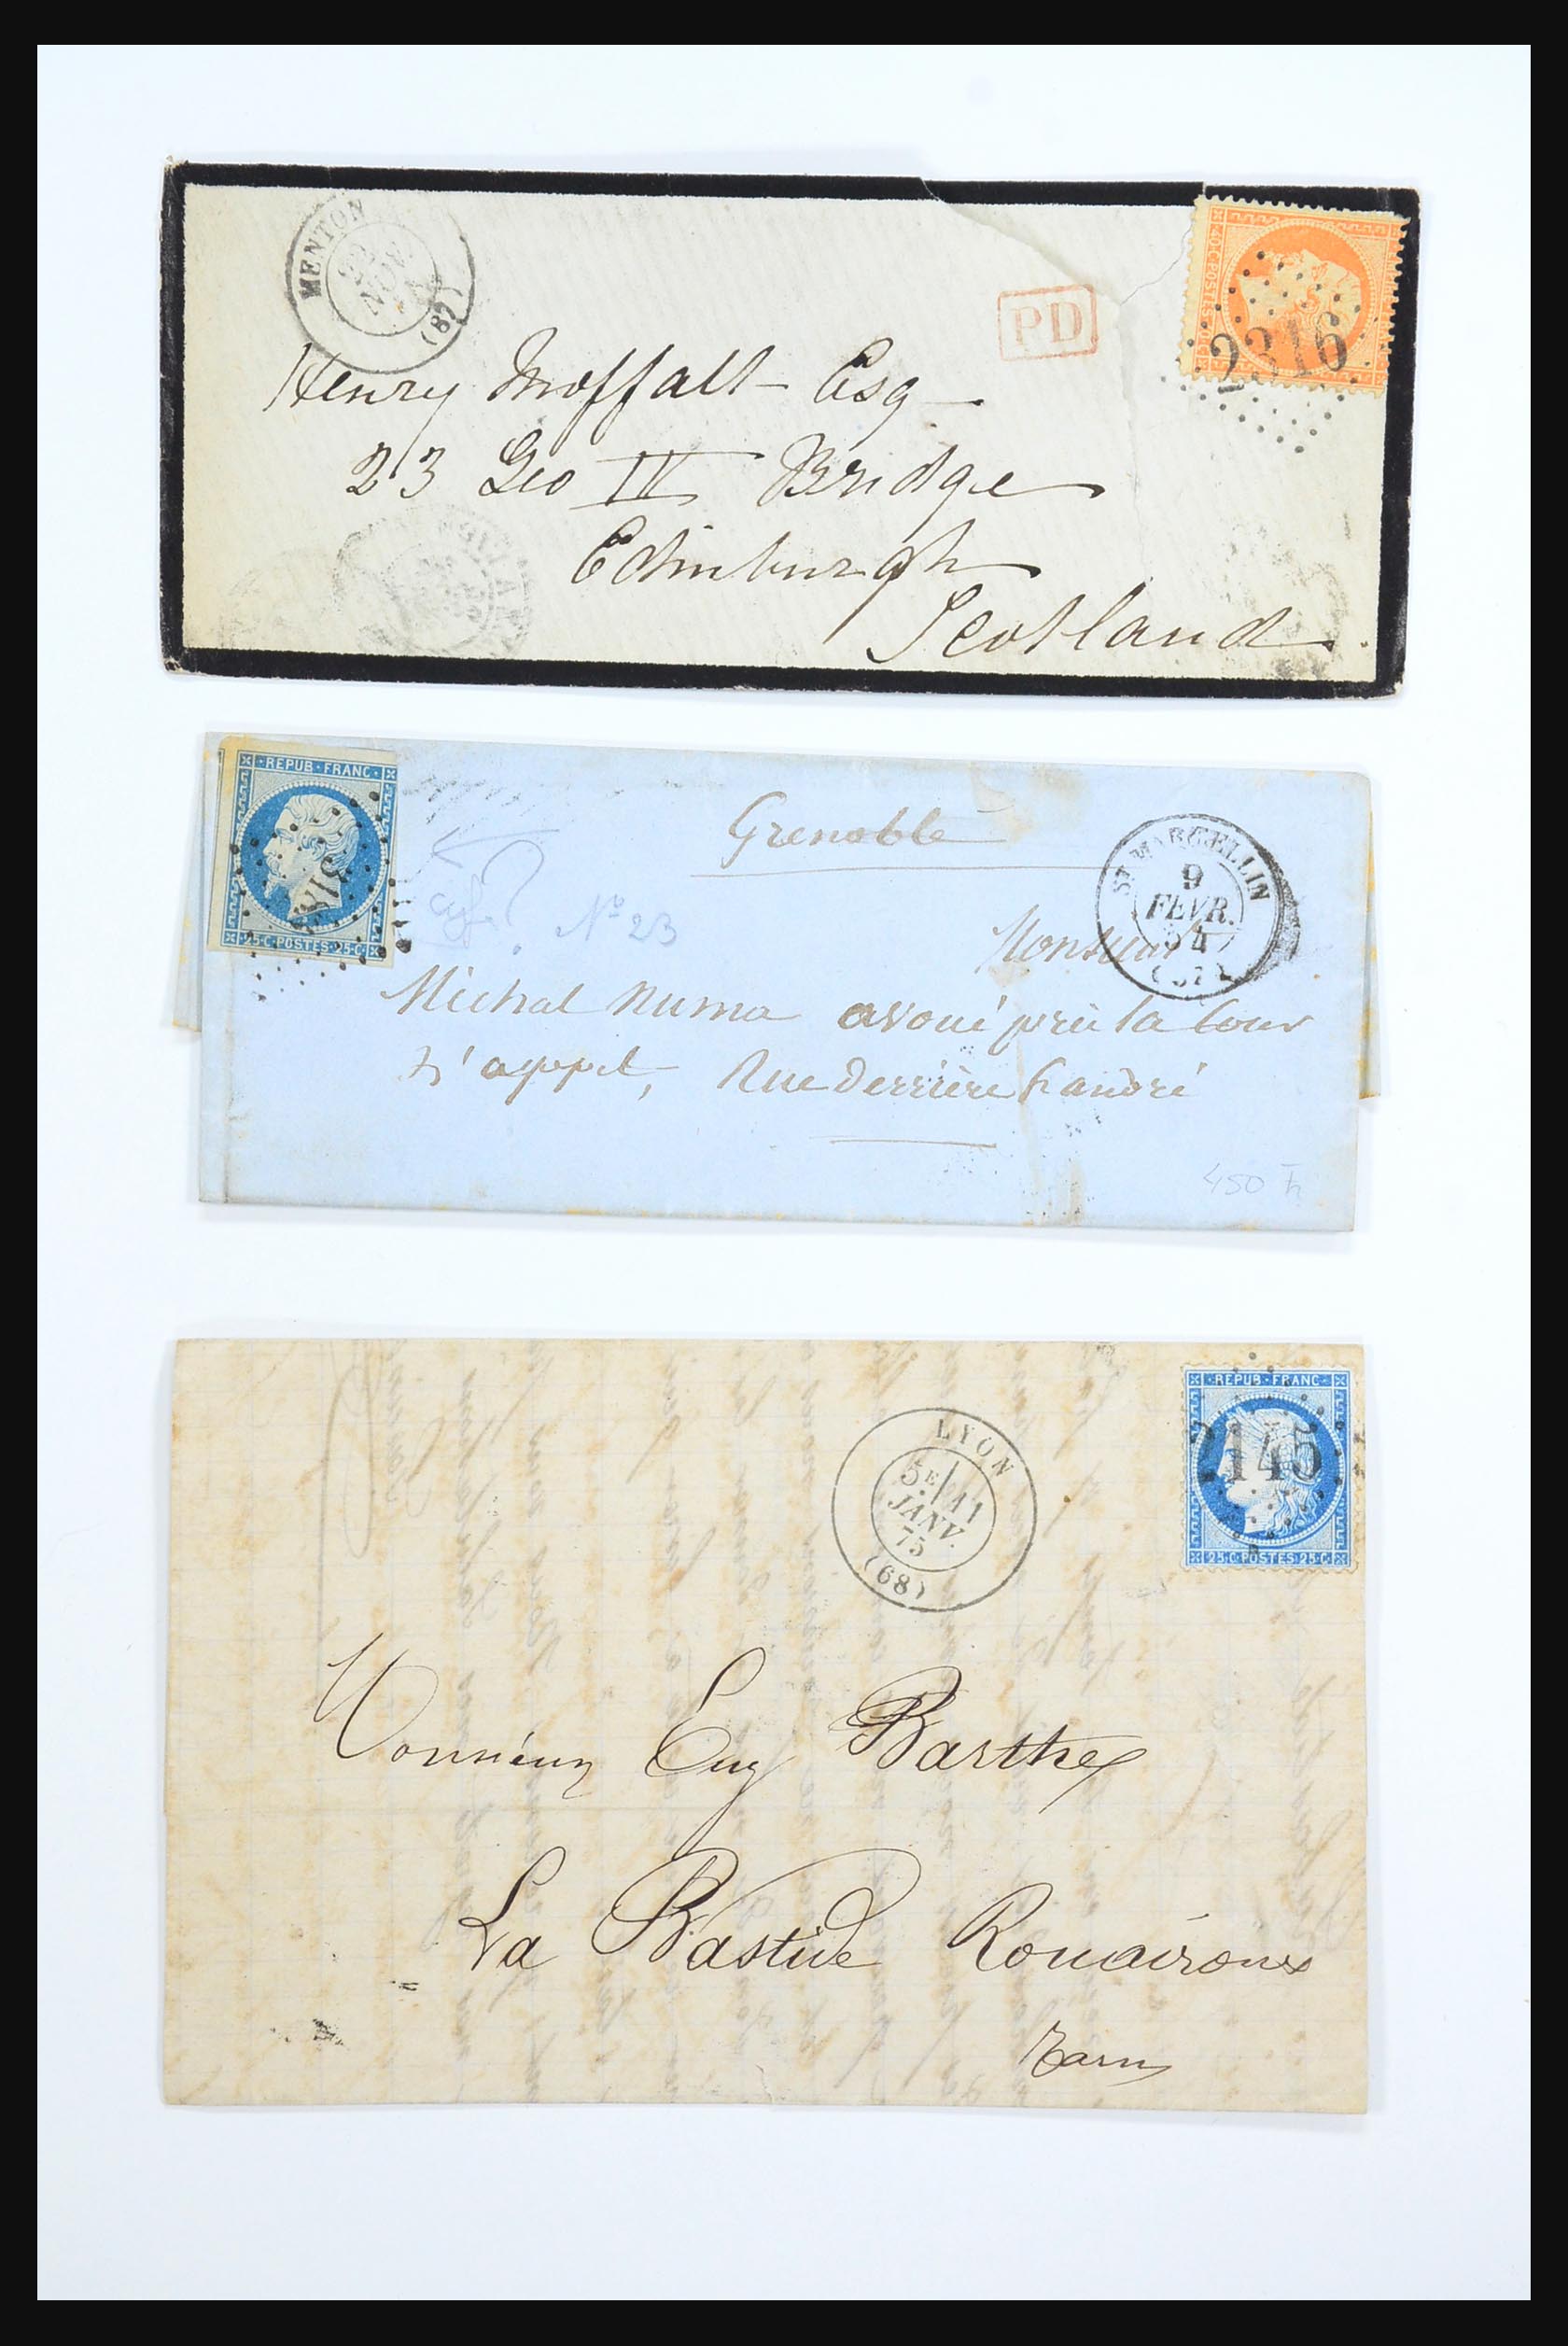 MENTON
22
NOV.
(87)
PD
40·C·POSTES
2316
Henry Moffatt Esq
23 Geo IV Bridge
Edinburgh
Scotland
·REPUB·FRANC·
25·C·POSTES·25·C
Grenoble
ST MARCELLIN
9
FEVR.
54
(37)
No 23
Monsieur
Michal Numa avoué près la Cour
d'appel, Rue Derrière St André
450 F
·REPUB·FRANC·
2145
25·C·POSTES·25·C
LYON
5E 11
JANV.
75
(68)
Monsieur Eug Barthe
La Bastide Rouairoux
Tarn